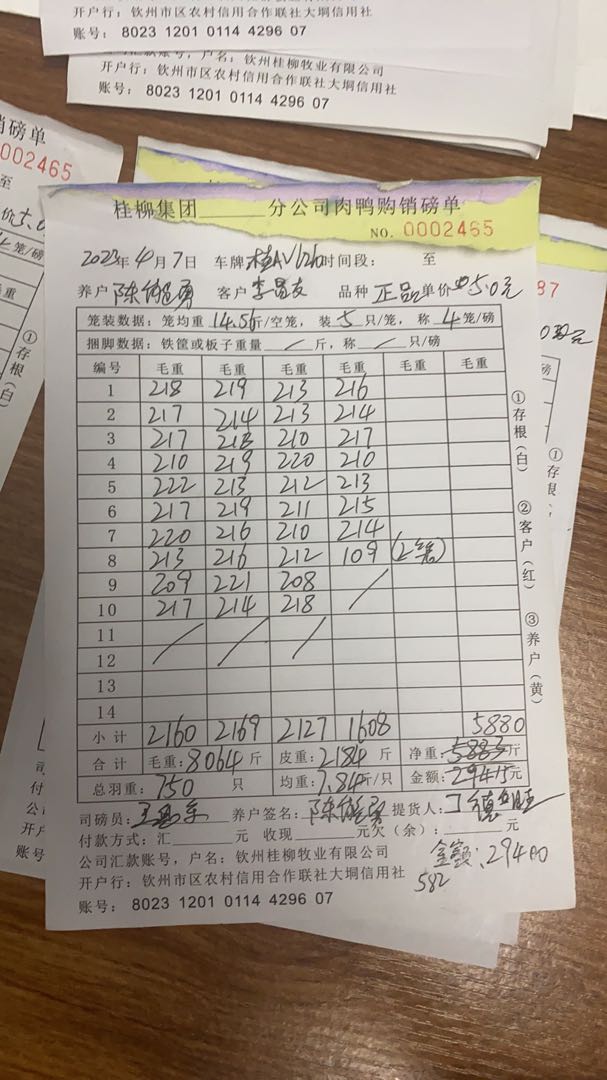 开户行：钦州市区农村信用合作联社大垌信用社
账号： 8023 1201 0114 4296 07
汇款账号，户名：钦州桂柳牧业有限公司
开户行：钦州市区农村信用合作联社大垌信用社
账号： 8023 1201 0114 4296 07
销磅单
0002465
至
价5.0
笼/磅
毛重
①存根（白）
桂柳集团______分公司肉鸭购销磅单
NO. 0002465
2023年4月7日 车牌 桂AV 时间段： 至
养户 客户 李昌友 品种 正品 单价 5.0元
笼装数据：笼均重14.56斤/空笼，装5只/笼，称4笼/磅
捆脚数据：铁筐或板子重量 / 斤，称 / 只/磅
编号 毛重 毛重 毛重 毛重 毛重 毛重
1 218 219 213 216
2 217 214 213 214
3 217 213 210 217
4 210 219 220 210
5 222 213 212 213
6 217 219 211 215
7 220 216 210 214
8 213 216 212 109 (2笼)
9 209 221 208 /
10 217 214 218
11 / / /
12
13
14
小计 2160 2169 2127 1608 5880
合计 毛重：8064斤 皮重：2184斤 净重：5883斤
总羽重：750只 均重：7.84斤/只 金额：29415元
司磅员： 养户签名： 提货人：
付款方式：汇______元 收现______元欠（余）：______元
公司汇款账号，户名：钦州桂柳牧业有限公司
金额：29400
开户行：钦州市区农村信用合作联社大垌信用社
582
账号： 8023 1201 0114 4296 07
①存根（白）
②客户（红）
③养户（黄）
87
①存根